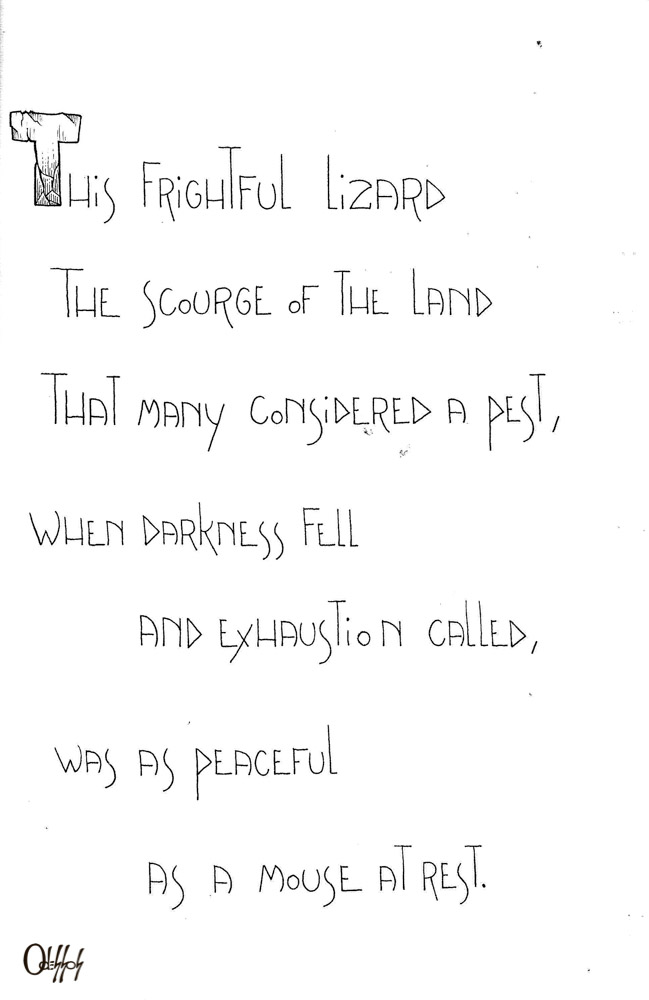 This frightful lizard
the scourge of the land
that many considered a pest,
when darkness fell
and exhaustion called,
was as peaceful
as a mouse at rest.